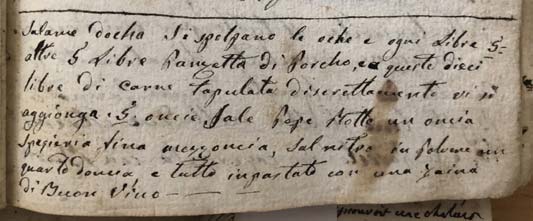 Salame docha si spolpano le oche e ogni Libre 5
altre 5 Libre Panzetta di Porcho, e a queste dieci
libre di carne Tapulata discrettamente vi si
aggionga 5 oncie Sale Pepe Rotto un oncia
spezieria fina mezzoncia, Salnitro in Polvere un
quarto doncia, e tutto impastato con una zaina
di Buon Vino